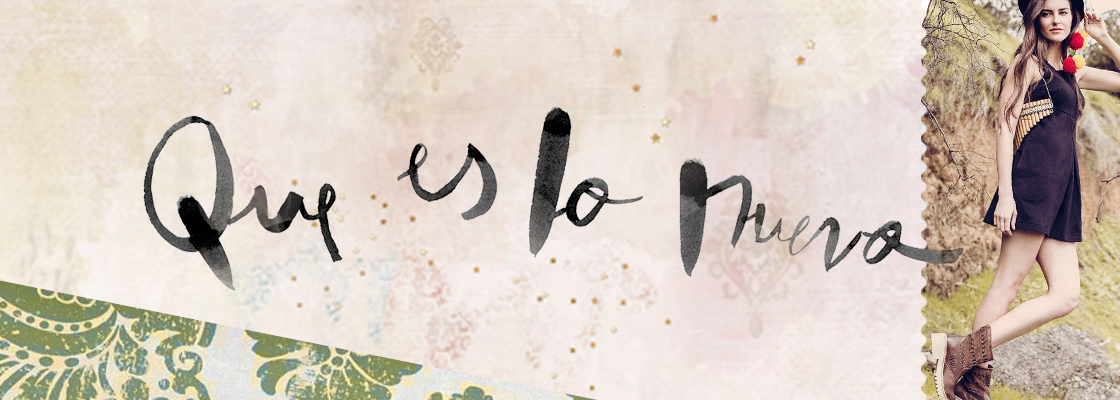 Que es lo nuevo